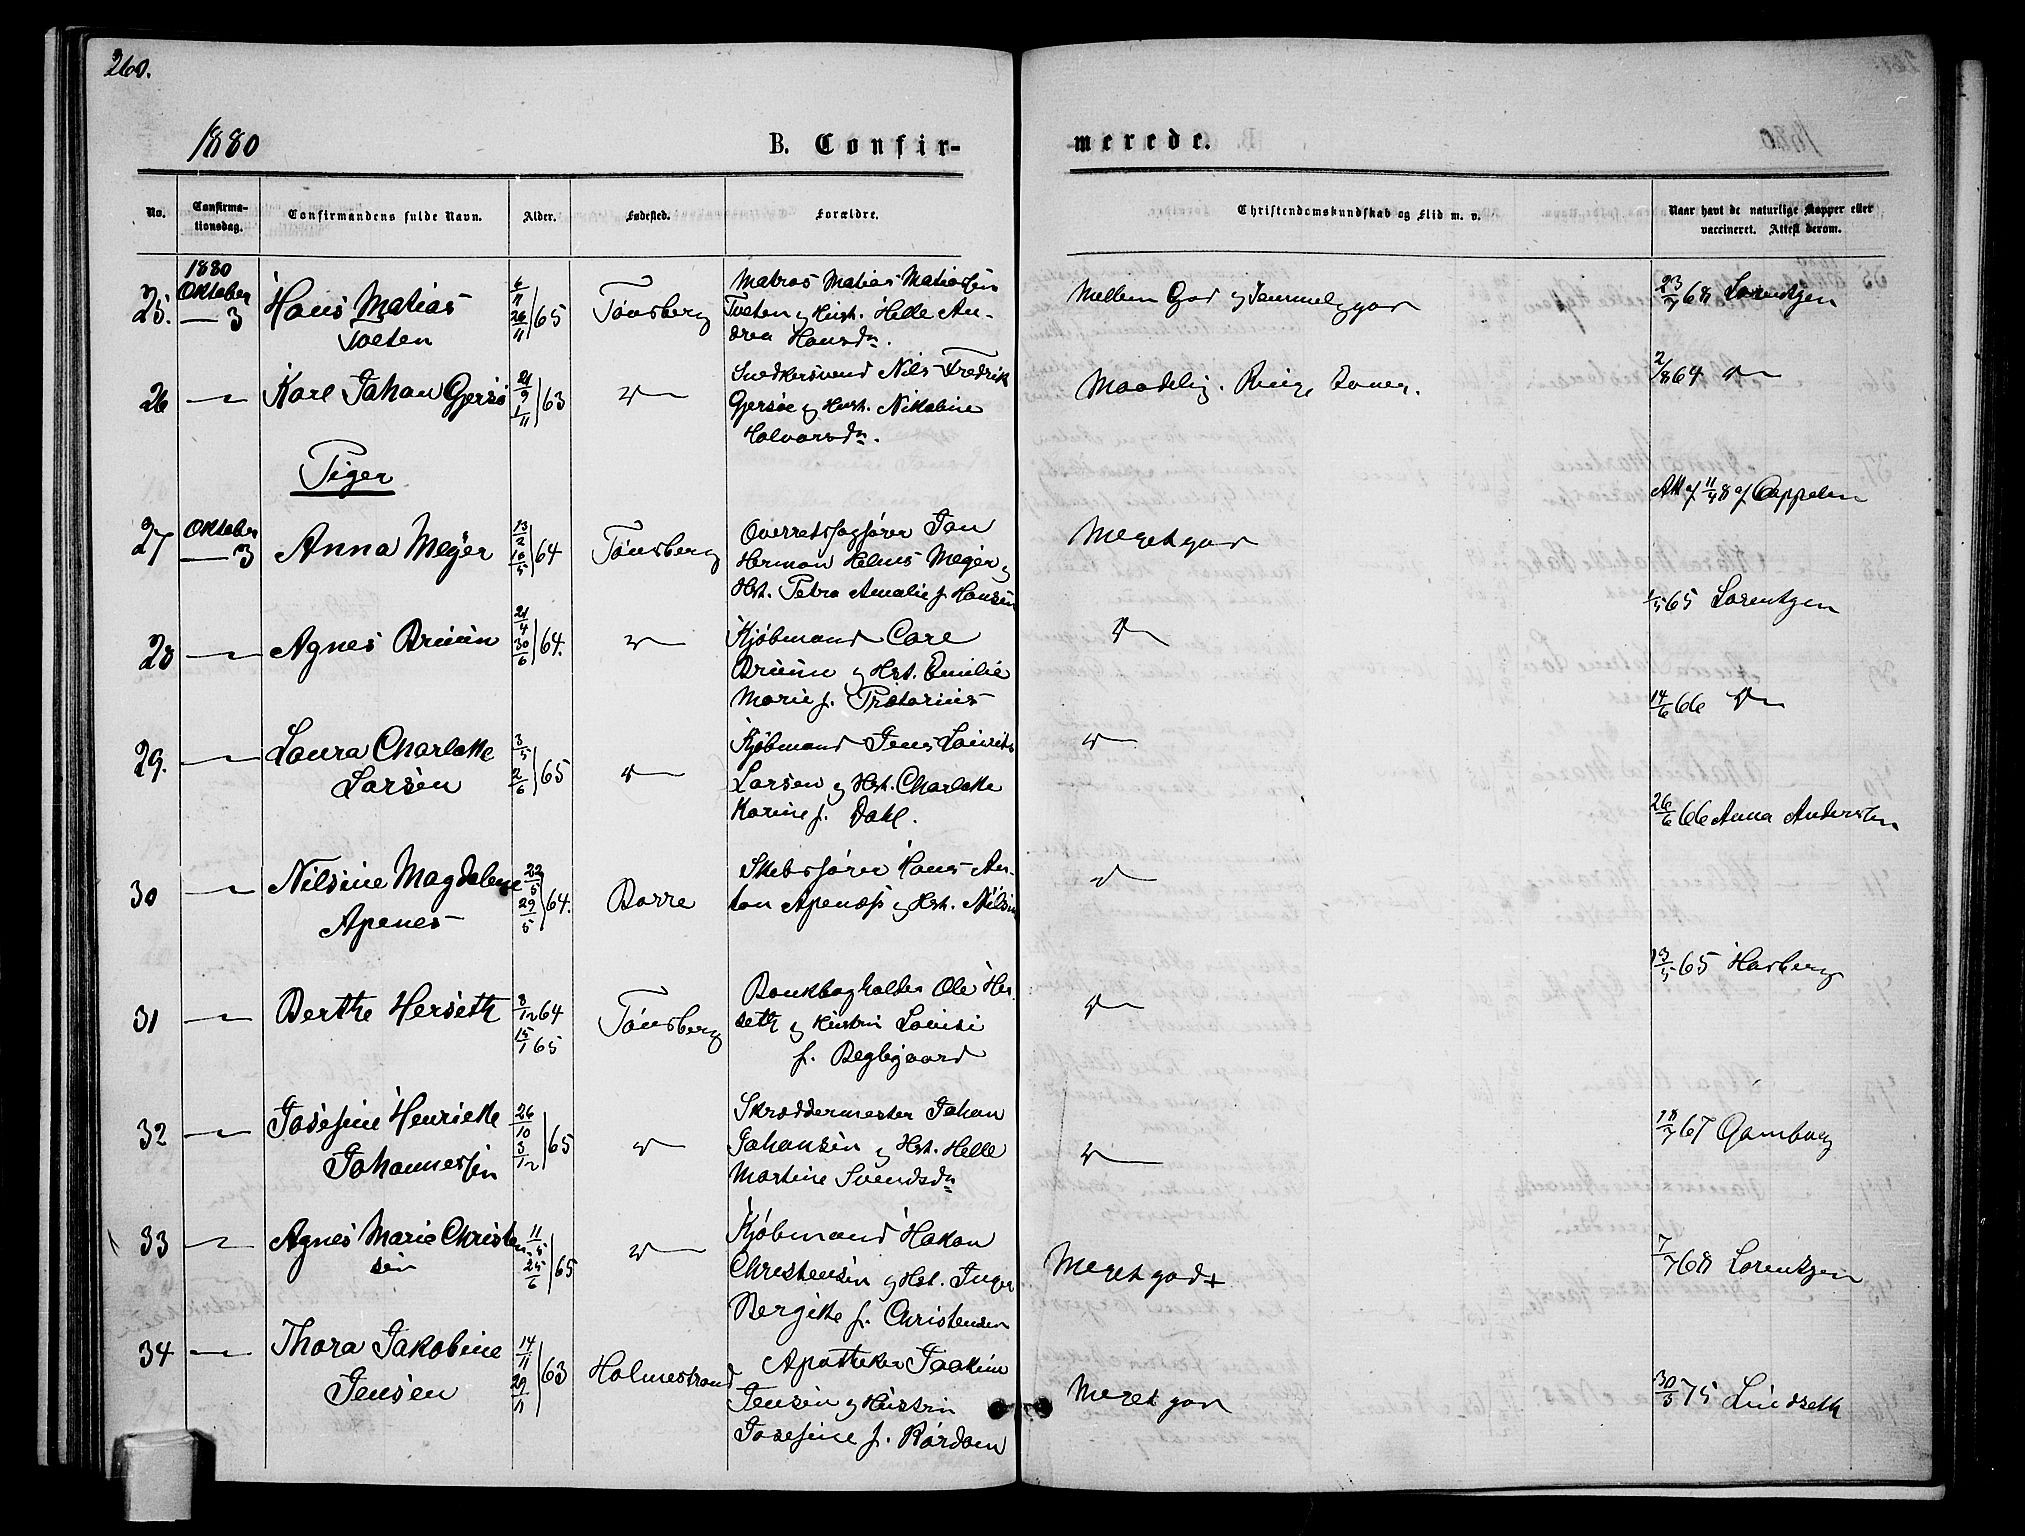 260.
1880
B. Confir-
merede.
No.
Confirma-
tionsdag.
Confirmandens fulde Navn.
Alder.
Fødested.
Forældre.
Christendomskundskab og Flid m. v.
Naar havt de naturlige Kopper eller
vaccineret. Attest derom.
1880
25. Oktober 3 Hans Matias Tveten 6/11 26/11 65 Tønsberg
Matros Matias Matiassen
Tveten og Hust. Helle An-
drea Hansdn.
Mellem God og Temmelig god
23/7 68 Lorentzen
26 — Karl Johan Gjersø 21/9 1/11 63 "—
Snedkersvend Nils Fredrik
Gjersøe og Hust. Nikoline
Halvorsdn.
Maadelig.
2/8 64 "—
Piger
27 Oktober 3 Anna Mejer 13/2 16/5 64 Tønsberg
Overretssagfører Jan
Herman Helms Mejer og
Hst. Petra Amalie f. Hansen
Meget god
Att af 11/4 8 af Cappelen
28 — Agnes Bruun 21/4 30/6 64. "—
Kjøbmand Carl
Bruun og Hst. Emilie
Marie f. Prætorius
"—
1/5 65 Lorentzen
29. — Laura Charlotte Larsen 3/5 2/6 65 "—
Kjøbmand Jens Lauritz
Larsen og Hst. Charlotte
Karine f. Dahl.
"—
14/6 66 "—
30 — Nilsine Magdalene Apenes 22/5 29/5 64. Borre
Skibsfører Hans An-
ton Apenæss og Hst. Nilsin
"—
26/6 66 Anna Anderssen
31 — Berthe Herseth 8/12 64 15/1 65 Tønsberg
Bankbogholder Ole Her-
seth og Hustru Louise
f. Beglegaard
"—
13/5 65 Hasberg
32 — Josefine Henriette Johannessen 26/10 3/12 65 "—
Skræddermester Johan
Johansen og Hst. Helle
Martine Svendsdn
"—
18/7 67 Gamborg
33 — Agnes Marie Christen-
sen 11/5 25/6 65 "—
Kjøbmand Hakon
Christensen og Hst. Inger
Bergitte f. Christensen
Meget god+
7/7 68 Lorentzen
34 — Thora Jakobine Jensen 14/11 29/11 63 Holmestrand
Apotheker Joakim
Jensen og Hustru
Josefine f. Rørdam
Meget god
30/3 75 Lindseth